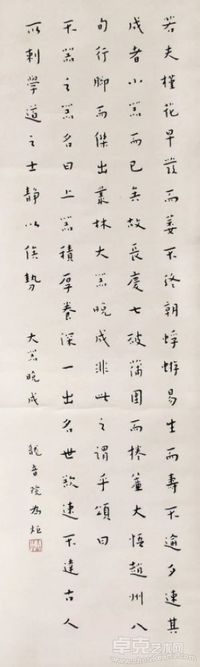 若夫槿花早發而萎不終朝蜉蝣易生而壽不逾夕速其
成者小器而已矣故長慶七破蒲團而捲簾大悟趙州八
旬行腳而傑出叢林大器晚成非此之謂乎頌曰
不器之器名曰上器積厚養深一出名世欲速不達古人
所刺學道之士静以俟勢 大器晚成
卓克艺术网